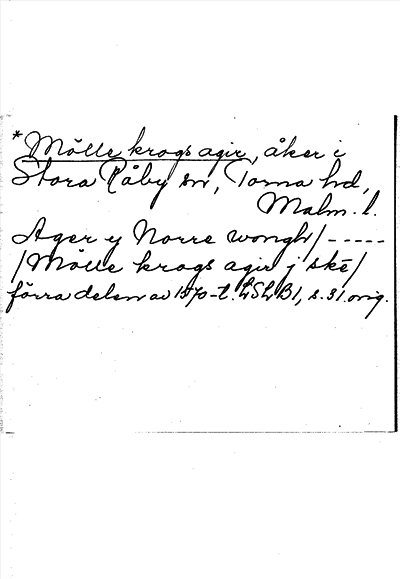 *Mölle krogs agir, åker i
Stora Råby sn, Torna hd,
Malm. l.
Ager y Norre wongh/-----
/Mölle krogs agir j skē/
förra delen av 1570-t. LSLB1, s. 31 orig.